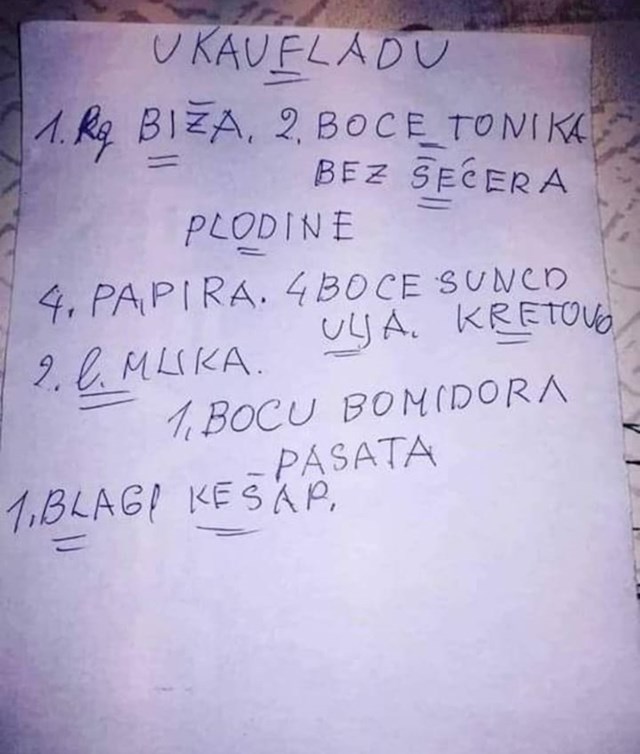 U KAUFLADU
1. Kg BIŽA. 2. BOCE TONIKA
BEZ ŠEĆERA
PLODINE
4. PAPIRA. 4 BOCE SUNCO
ULJA. KRETOVO
2. l. MLIKA.
1, BOCU BOMIDORA
- PASATA
1, BLAGI KEŠAP.